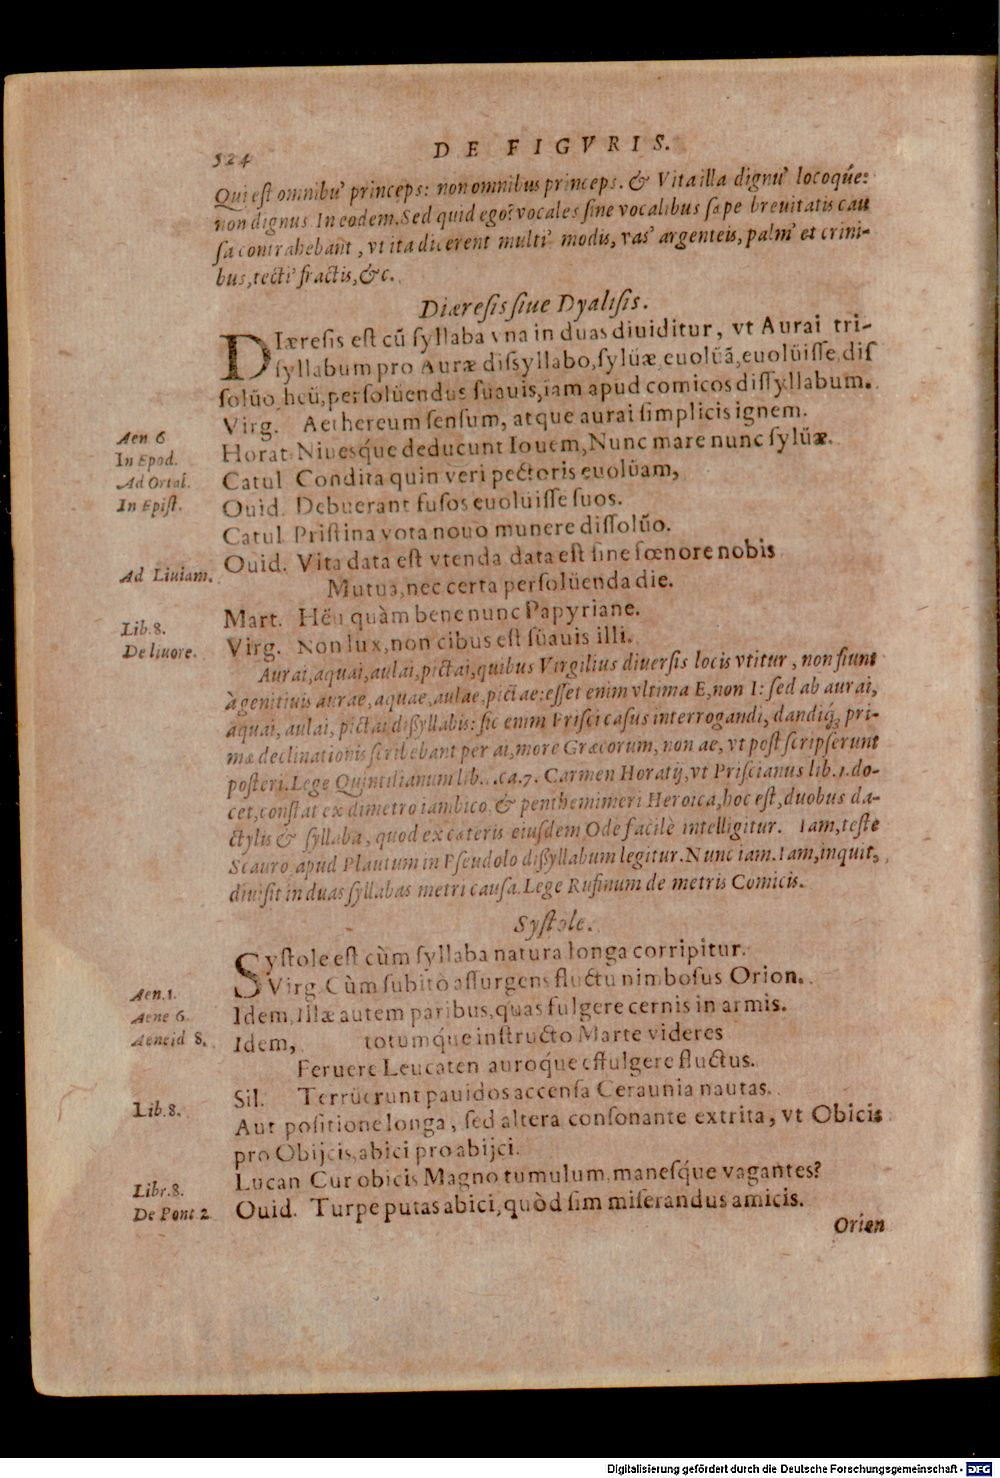 324
DE FIGVRIS.
Qui est omnibu' princeps: non omnibus princeps. & Vita illa dignu' locoq́ue:
non dignus In eodem. Sed quid ego? vocales sine vocalibus sæpe breuitatis cau
sa contrahebant, vt ita dicerent multi' modis, vas' argenteis, palm' et crini-
bus, tecti' fractis, &c.
Diæresis siue Dyalisis.
DIæresis est cū syllaba vna in duas diuiditur, vt Aurai tri-
syllabum pro Auræ dissyllabo, sylüæ, euolüā, euolüisse, dis
solüo, heü, persolüendus süauis, iam apud comicos dissyllabum.
Aen 6
Virg. Aethereum sensum, atque aurai simplicis ignem.
In Epod.
Horat. Niuesq́ue deducunt Iouem, Nunc mare nunc sylüæ.
Ad Ortal.
Catul Condita quin veri pectoris euolüam,
In Epist.
Ouid. Debuerant fusos euoluisse suos.
Catul Pristina vota nouo munere dissolüo.
Ad Liuiam.
Ouid. Vita data est vtenda data est sine fœnore nobis
Mutua, nec certa persolüenda die.
Lib. 8.
Mart. Hëu quàm bene nunc Papyriane.
De liuore.
Virg. Non lux, non cibus est süauis illi.
Aurai, aquai, aulai, pictai, quibus Virgilius diuersis locis vtitur, non fiunt
à genitiuis aurae, aquae, aulae, pictae: esset enim vltima E, non I: sed ab aurai,
aquai, aulai, pictai dißyllabis: sic enim Prisci casus interrogandi, dandiq́; pri-
mæ declinationis scribebant per ai, more Græcorum, non ae, vt post scripserunt
posteri. Lege Quintilianum lib. .ca.7. Carmen Horatij, vt Priscianus lib.1.do-
cet, constat ex dimetro iambico, & penthemimeri Heroica, hoc est, duobus da-
ctylis & syllaba, quod ex cæteris eiusdem Ode facilè intelligitur. Iam, teste
Scauro apud Plautum in Pseudolo dißyllabum legitur. Nunc iam. Iam, inquit,
diuisit in duas syllabas metri causa. Lege Rufinum de metris Comicis.
Systole.
SYstole est cùm syllaba natura longa corripitur.
Aen.1.
Virg. Cùm subitò assurgens fluctu nimbosus Orion.
Aene 6.
Idem, Illæ autem paribus, quas fulgere cernis in armis.
Aeneid 8.
Idem, totumq́ue instructo Marte videres
Feruere Leucaten auroq́ue effulgere fluctus.
Lib.8.
Sil. Terrüerunt pauidos accensa Ceraunia nautas.
Aut positione longa, sed altera consonante extrita, vt Obicis
pro Obijcis, abici pro abijci.
Libr.8.
Lucan Cur obicis Magno tumulum, manesq́ue vagantes?
De Pont 2
Ouid. Turpe putas abici, quòd sim miserandus amicis.
Orien
Digitalisierung gefördert durch die Deutsche Forschungsgemeinschaft - DFG